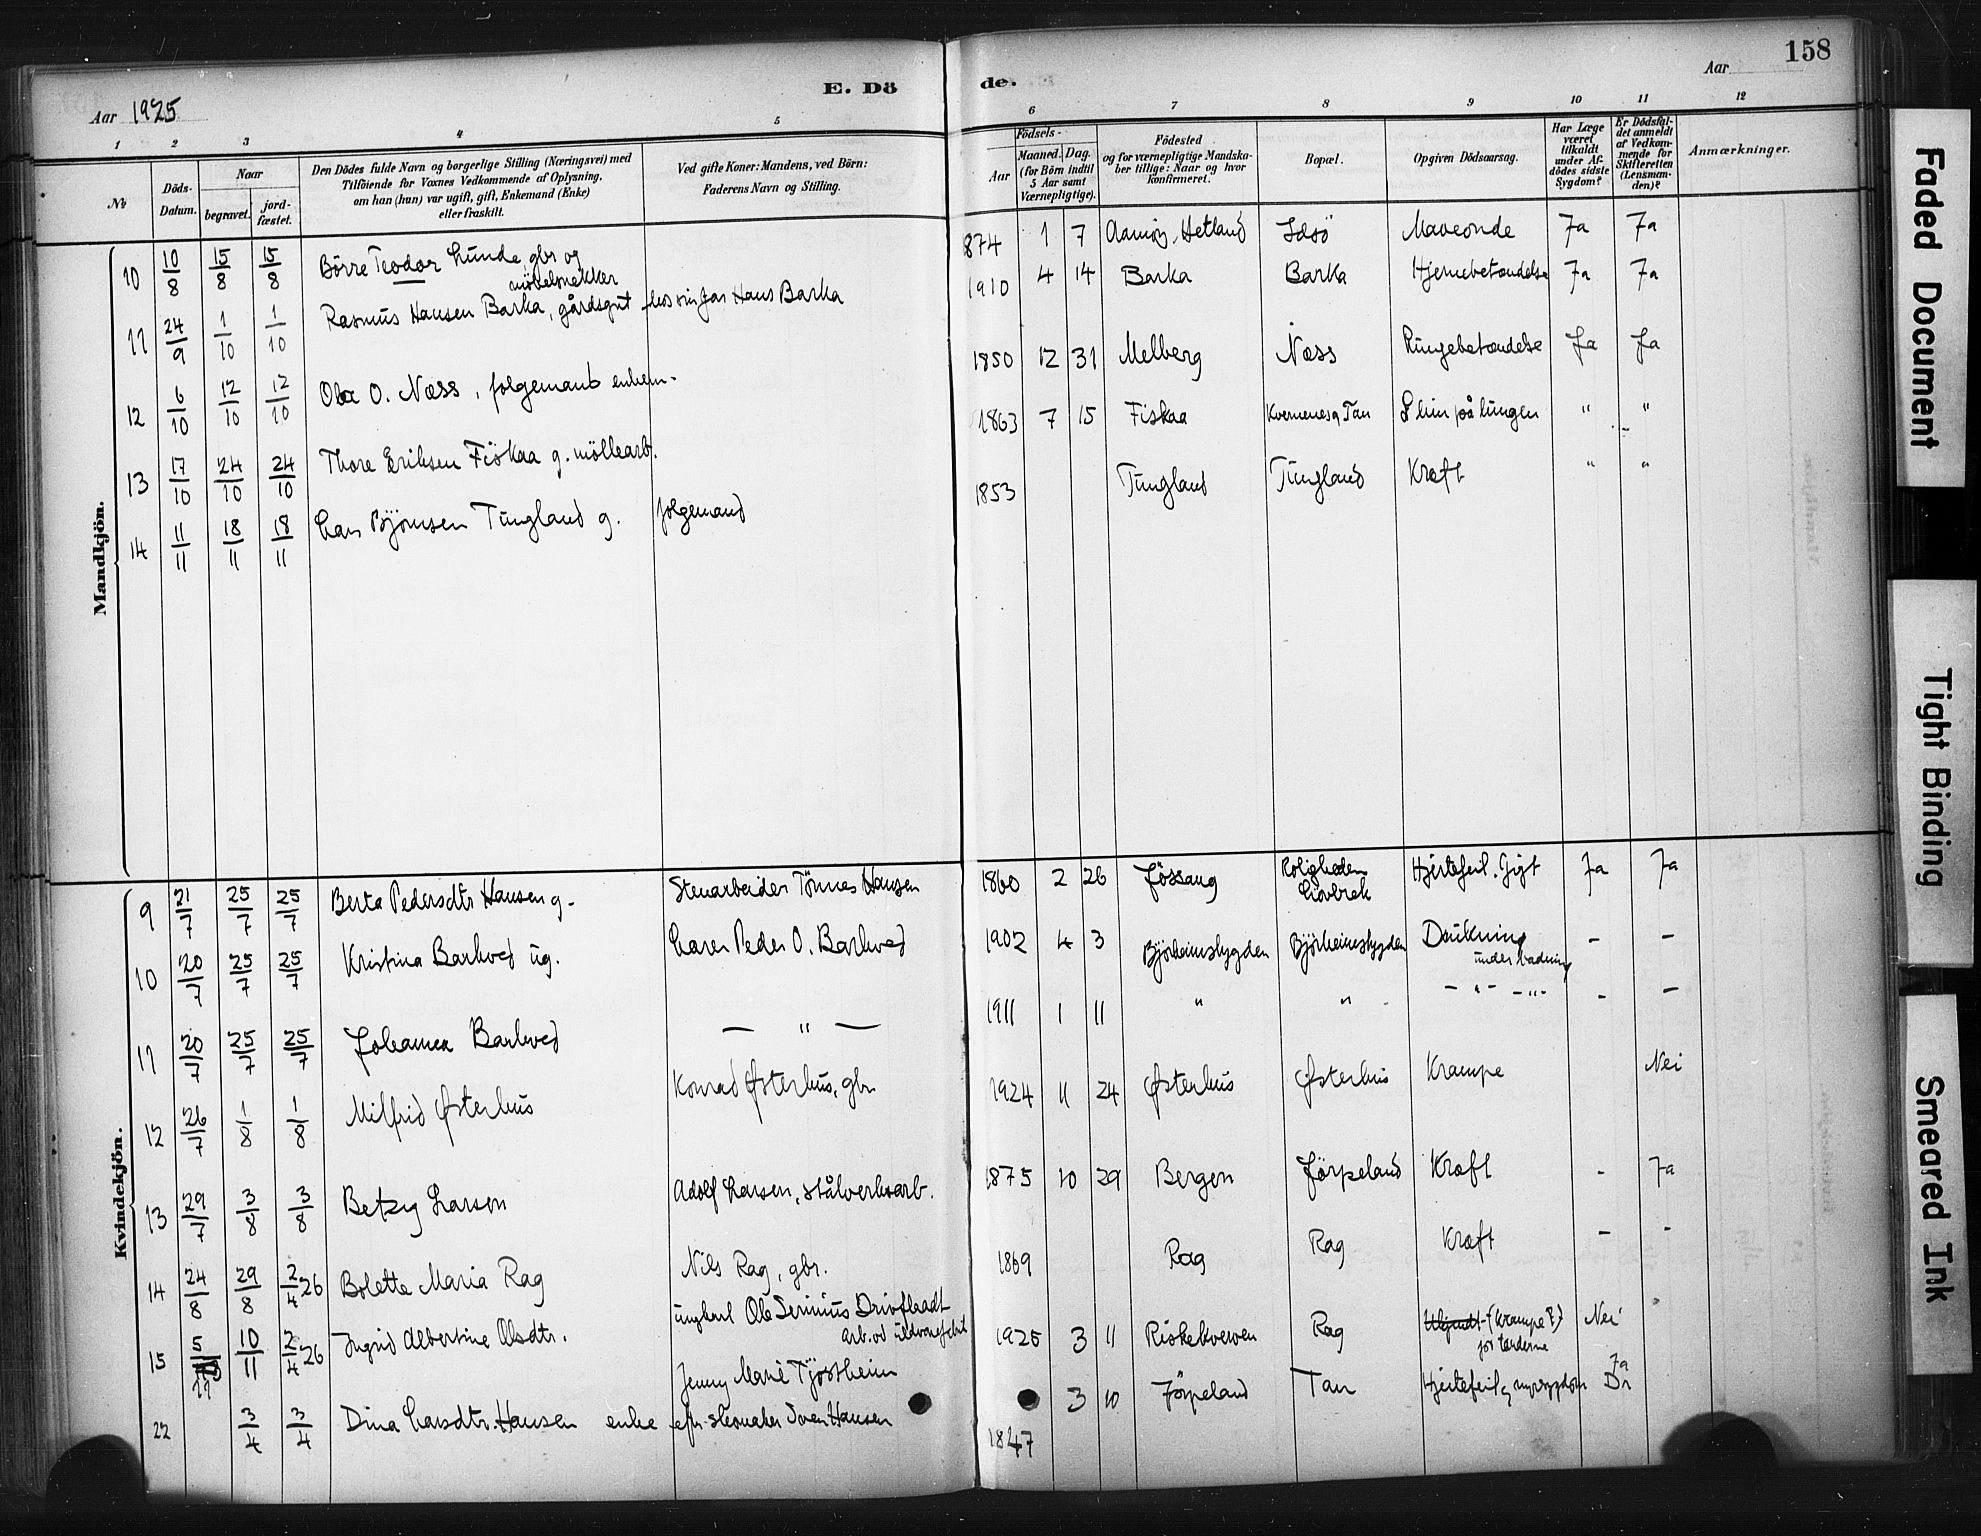 158
Aar 1925
E. Dö
de.
Aar
1 2 3 4 5
6 7 8 9 10 11 12
№
Döds-Datum.
Naar
begravet.
jordfæstet.
Den Dödes fulde Navn og borgerlige Stilling (Næringsvei) med
Tilföiende for Voxnes Vedkommende af Oplysning,
om han (hun) var ugift, gift, Enkemand (Enke)
eller fraskilt.
Ved gifte Koner: Mandens, ved Börn:
Faderens Navn og Stilling.
Födsels-
Aar
Maaned. Dag.
(for Börn indtil
5 Aar samt
Værnepligtige).
Födested
og for værnepligtige Mandska-
ber tillige: Naar og hvor
konfirmeret.
Bopæl.
Opgiven Dödsaarsag.
Har Læge
været
tilkaldt
under Af-
dödes sidste
Sygdom?
Er Dödsfal-
det anmeldt
af Vedkom-
mende for
Skifteretten
(Lensman-
den)?
Anmærkninger.
Mandkjön.
10 10/8 15/8 15/8 Börre Teodor Lunde gbr og
möbelsnekker
1874 1 7 Aamöy, Hetland Idsö Maveonde Ja Ja
11 24/9 1/10 1/10 Rasmus Hansen Barka, gårdsgut hos sin far Hans Barka 1910 4 14 Barka Barka Hjernebetændelse Ja Ja
12 6/10 12/10 12/10 Ola O. Næss, folgemand enkem. 1850 12 31 Melberg Næss Lungebetændelse Ja Ja
13 17/10 24/10 24/10 Thore Eriksen Fiskaa g. möllearb. 1863 7 15 Fiskaa Kvernenes, Tau Slim på lungen " "
14 11/11 18/11 18/11 Lars Bjørnsen Tungland g. folgemand 1853 Tungland Tungland Kræft " "
Kvindekjön.
9 21/7 25/7 25/7 Berta Pedersdtr Hansen g. Stenarbeider Tönnes Hansen 1860 2 26 Jössang Roligheden
Hjertefeil. Gigt Ja Ja
10 20/7 25/7 25/7 Kristina Barkved ug. Lærer Peder O. Barkved 1902 4 3 Björheimsbygden Björheimsbygden Drukning
under badning - -
11 20/7 25/7 25/7 Johanna Barkved — " — 1911 1 11 " " - " - - " - - -
12 26/7 1/8 1/8 Milfrid Østerhus Konrad Østerhus, gbr 1924 11 24 Østerhus Østerhus Krampe Nei
13 29/7 3/8 3/8 Betzy Larsen Adolf Larsen, stålverksarb. 1875 10 29 Bergen Jörpeland Kræft - Ja
14 24/8 29/8 2/4 26 Bolette Maria Rag Nils Rag, gbr. 1869 Rag Rag Kræft - -
15 5/11 10/11 2/4 26 Ingrid Albertine Olsdtr. ungkarl Ole Serinius
arb. ved uldvarefabrik
1925 3 11 Riskekverven Rag (Krampe?)
for tænderne Nei
22 3/4 3/4 Dina Larsdtr. Hansen enke efter skomaker Hansen
Jenny Marie Tjöstheim
1847 3 10 Jörpeland Tau Hjertefeil Ja
Faded Document
Tight Binding
Smeared Ink